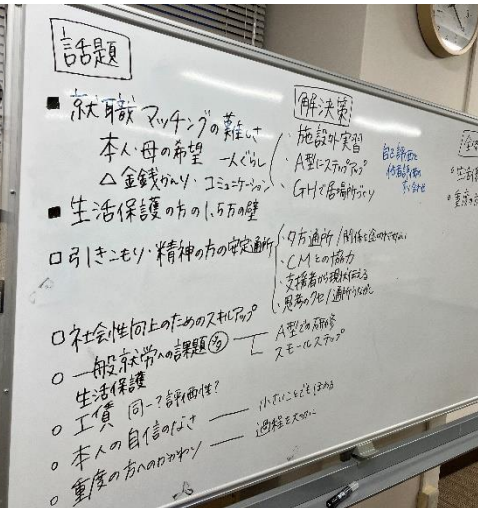 話題
■ 就職マッチングの難しさ
本人・母の希望 一人ぐらし
△金銭かんり・コミュニケーション
■ 生活保護の方の1.5万の壁
□ 引きこもり・精神の方の安定通所
□ 社会性向上のためのスキルアップ
○ 一般就労への課題
生活保護
○ 工賃 同一?評価性?
○ 本人の自信のなさ
○ 重度の方へのかかわり
解決策
・施設外実習
・A型にステップアップ
・GHで居場所づくり
自己評価と
他者評価の
すり合わせ
・夕方通所/関係を
・CMとの協力
・支援者から現状伝える
・思考のクセ/通所うながし
A型での研修
スモールステップ
小さいことでもほめる
過程を大切に